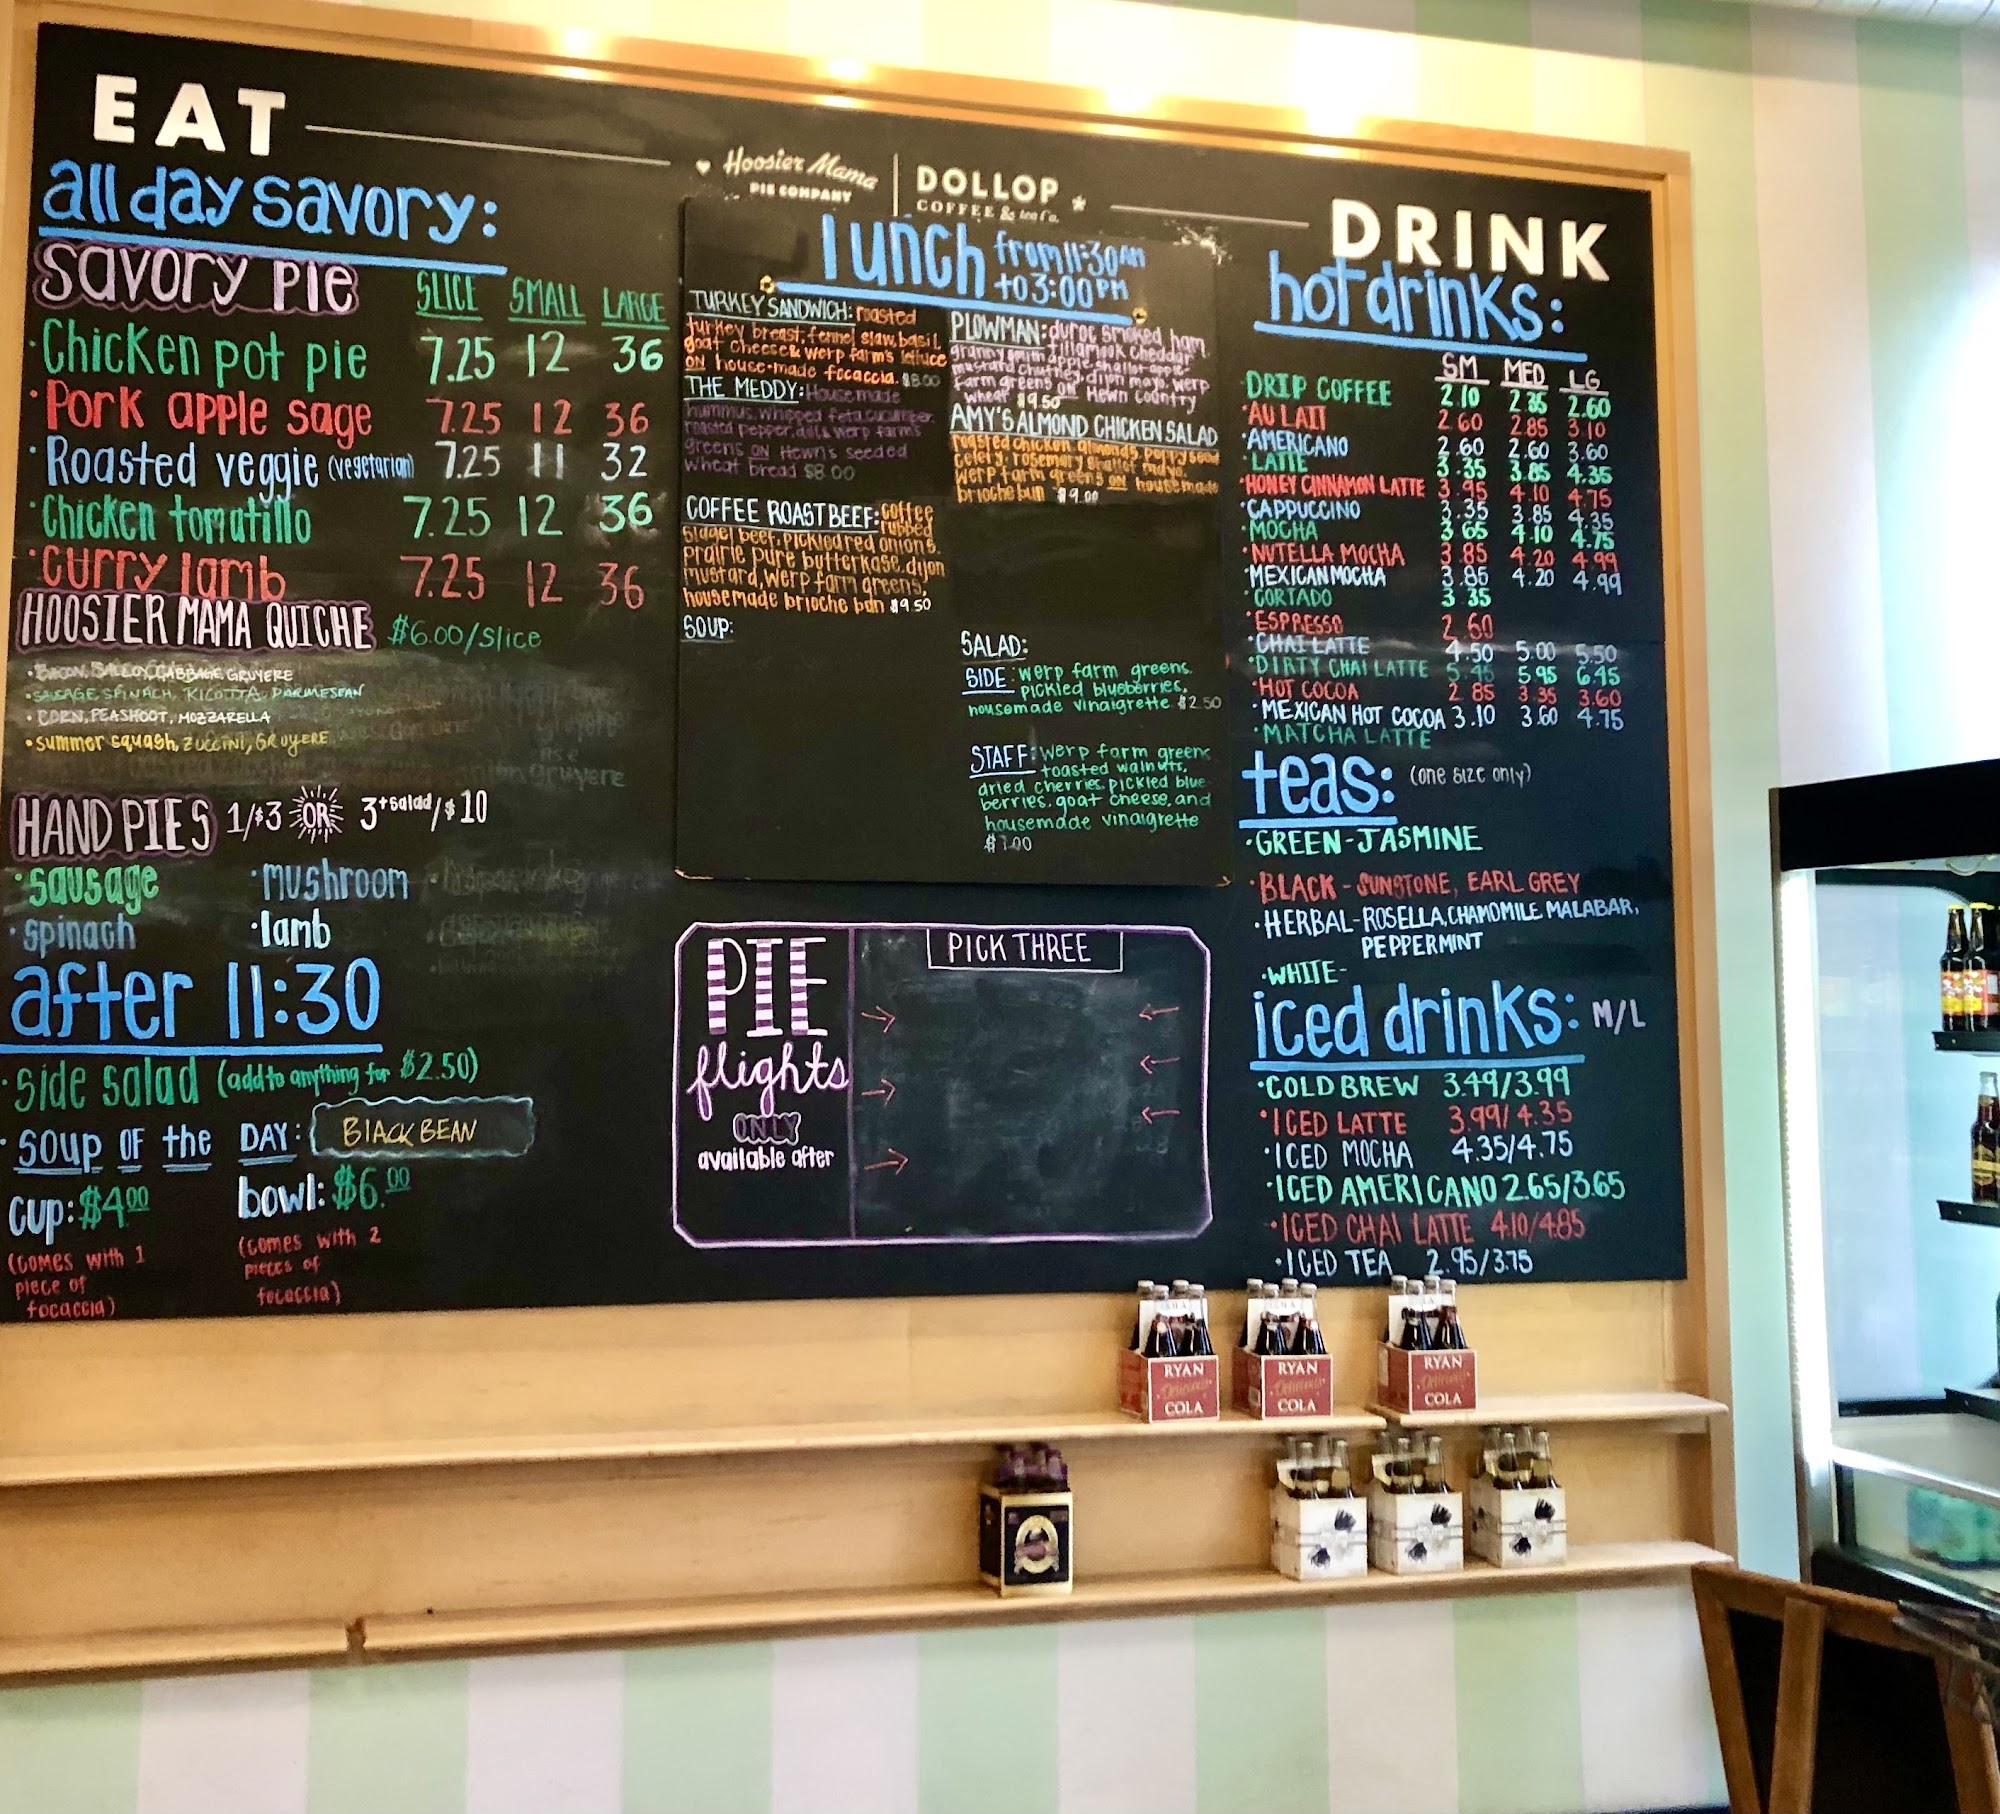 EAT
Hoosier Mama
PIE COMPANY
DOLLOP
COFFEE & tea Co.
DRINK
all day savory:
SAVORY PIE SLICE SMALL LARGE
·Chicken pot pie 7.25 12 36
·Pork apple sage 7.25 12 36
·Roasted veggie (vegetarian) 7.25 11 32
·Chicken tomatillo 7.25 12 36
·Curry lamb 7.25 12 36
HOOSIER MAMA QUICHE $6.00/slice
·BACON, CABBAGE, GRUYERE
·SAUSAGE, SPINACH, RICOTTA, PARMESEAN
·CORN, PEASHOOT, MOZZARELLA
·summer squash, ZUCCINI, GRUYERE
HAND PIES 1/$3 OR 3+salad/$10
·sausage ·mushroom
·spinach ·lamb
after 11:30
·side salad (add to anything for $2.50)
·soup OF the DAY: BLACK BEAN
cup: $4.00 bowl: $6.00
(comes with 1
piece of
focaccia)
(comes with 2
pieces of
focaccia)
lunch from 11:30AM
to 3:00PM
TURKEY SANDWICH: roasted
turkey breast, fennel slaw, basil
goat cheese & werp farm's lettuce
ON house-made focaccia. $8.00
THE MEDDY: House made
hummus, whipped feta, cucumber,
roasted pepper, dill & werp farm's
greens ON Hewn's seeded
wheat bread $8.00
COFFEE ROAST BEEF: coffee
rubbed
slagel beef, pickled red onions,
prairie pure butterkase, dijon
mustard, werp farm greens,
housemade brioche bun $9.50
SOUP:
PLOWMAN: duroc smoked ham,
tillamook cheddar
granny smith apple, shallot apple
mustard chutney, dijon mayo, werp
farm greens ON Hewn country
wheat $9.50
AMY'S ALMOND CHICKEN SALAD
roasted chicken, almonds, poppy seed
celery, rosemary shallot mayo,
werp farm greens ON housemade
brioche bun $9.00
SALAD:
SIDE: werp farm greens,
pickled blueberries,
housemade vinaigrette $2.50
STAFF: werp farm greens
toasted walnuts,
dried cherries, pickled blue
berries, goat cheese, and
housemade vinaigrette
$7.00
PIE
flights
ONLY
available after
PICK THREE
hot drinks:
SM MED LG
·DRIP COFFEE 2.10 2.35 2.60
·AU LAIT 2.60 2.85 3.10
·AMERICANO 2.60 2.60 3.60
·LATTE 3.35 3.85 4.35
·HONEY CINNAMON LATTE 3.95 4.10 4.75
·CAPPUCCINO 3.35 3.85 4.35
·MOCHA 3.65 4.10 4.75
·NUTELLA MOCHA 3.85 4.20 4.99
·MEXICAN MOCHA 3.85 4.20 4.99
·CORTADO 3.35
·ESPRESSO 2.60
·CHAI LATTE 4.50 5.00 5.50
·DIRTY CHAI LATTE 5.45 5.95 6.45
·HOT COCOA 2.85 3.35 3.60
·MEXICAN HOT COCOA 3.10 3.60 4.75
·MATCHA LATTE
teas: (one size only)
·GREEN-JASMINE
·BLACK-SUNSTONE, EARL GREY
·HERBAL-ROSELLA, CHAMOMILE MALABAR,
PEPPERMINT
·WHITE-
iced drinks: M/L
·COLD BREW 3.49/3.99
·ICED LATTE 3.99/4.35
·ICED MOCHA 4.35/4.75
·ICED AMERICANO 2.65/3.65
·ICED CHAI LATTE 4.10/4.85
·ICED TEA 2.95/3.75
RYAN
COLA
RYAN
COLA
RYAN
COLA